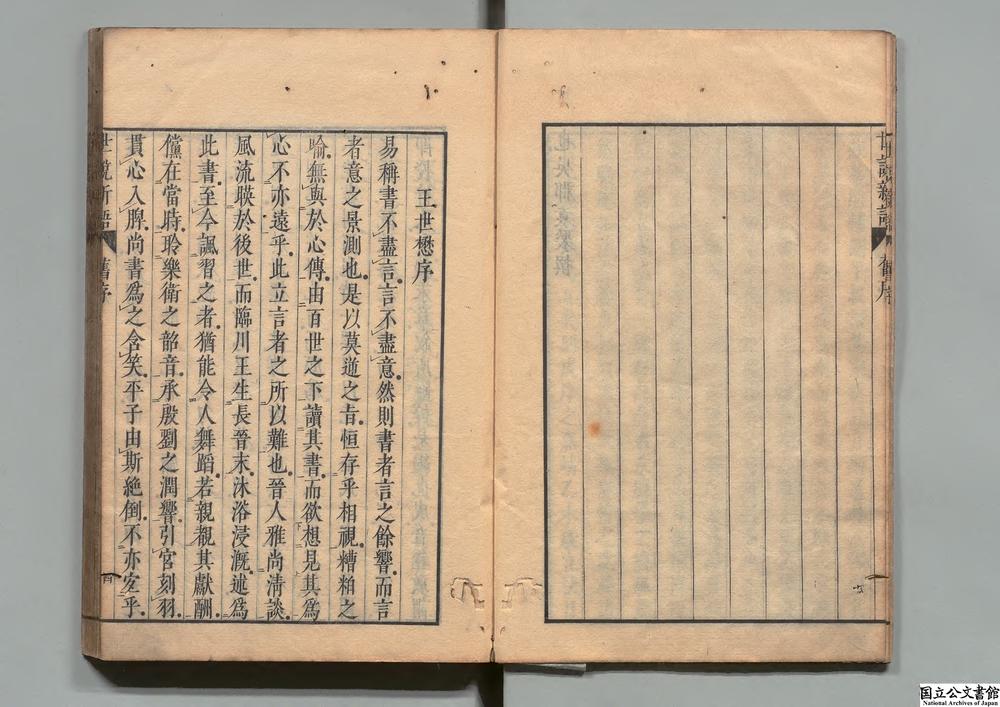 世說新語
舊序
王世懋序
易稱書不盡言言不盡意然則書者言之餘響而言
者意之景測也是以莫逆之旨恒存乎相視糟粕之
喻無與於心傳由百世之下讀其書而欲想見其爲
心不亦遠乎此立言者之所以難也晉人雅尚淸談
風流暎於後世而臨川王生長晉末沐浴浸漑述爲
此書至今諷習之者猶能令人舞蹈若親覩其獻酬
儻在當時聆樂衛之韶音承殷劉之潤響引宮刻羽
貫心入脾尚書爲之含笑平子由斯絶倒不亦宜乎
世說新語
舊序
国立公文書館
National Archives of Japan